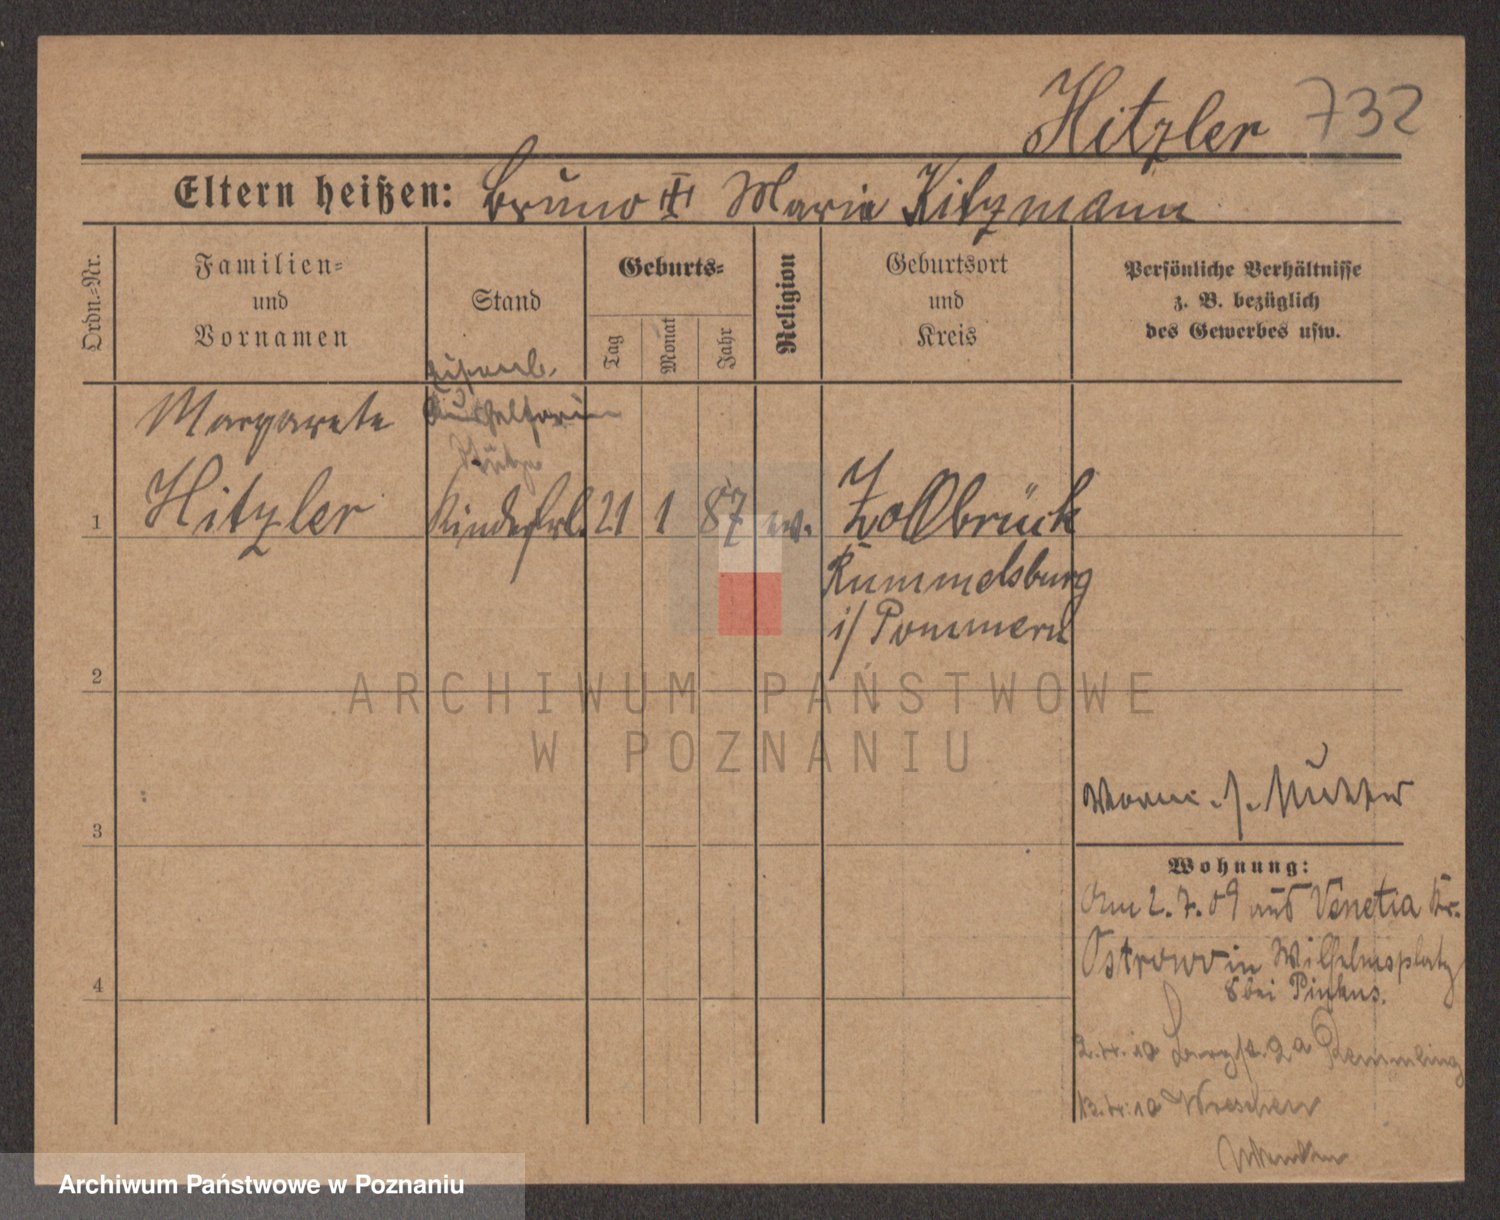 Hitzler 732
Eltern heißen: Bruno Marie Kitzmann
Ordn.=Nr.
Familien=
und
Vornamen
Stand
Geburts=
Tag
Monat
Jahr
Religion
Geburtsort
und
Kreis
Persönliche Verhältnisse
z. B. bezüglich
des Gewerbes usw.
Margarete
Stütze
1 Hitzler Kinderfrl. 21 1 87 ev. Zollbrück
Rummelsburg
i/ Pommern
2
ARCHIWUM PAŃSTWOWE
W POZNANIU
3
Wohnung:
Am 2.7.09 aus Venetia Kr.
Ostrowo in Wilhelmsplatz
8 bei Pinkus.
4
2a Remmling
Wreschen
Archiwum Państwowe w Poznaniu